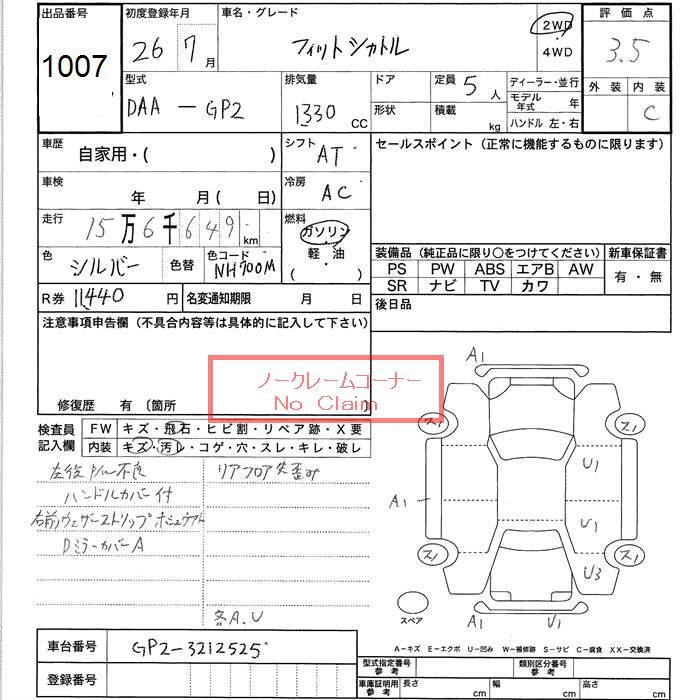 出品番号 初度登録年月 車名・グレード 評価点
1007 26 7月 フィットシャトル 2WD 4WD 3.5
型式 排気量 ドア 定員 5人 ディーラー・並行 外装 内装
DAA-GP2 1330 CC 形状 積載 kg モデル年式 年 C
ハンドル 左・右
車歴 自家用・( ) シフト AT セールスポイント(正常に機能するものに限ります)
車検 年 月( 日) 冷房 AC
走行 15万6千649km 燃料 ガソリン
軽・油
( )
色 シルバー 色替 色コード NH700M
装備品(純正品に限り〇をつけてください) 新車保証書
PS PW ABS エアB AW 有・無
SR ナビ TV カワ
R券 11440円 名変通知期限 月 日 後日品
注意事項申告欄(不具合内容等は具体的に記入して下さい)
ノークレームコーナー
No Claim
修復歴 有 〔箇所
検査員記入欄 FW キズ・飛石・ヒビ割・リペア跡・X要
内装 キズ・汚レ・コゲ・穴・スレ・キレ・破レ
左後P/W不良 リアフロア突歪み
ハンドルカバー付
右前ウェザーストリップ
DミラーカバーA
各A、U
A1
ス1 ス1
U1
A1
U1
ス1 ス1
U3
スペア A1 U1
A-キズ E-エクボ U-凹み W-補修跡 S-サビ C-腐食 XX-交換済
車台番号 GP2-3212525
登録番号
型式指定番号 参考 類別区分番号 参考
車庫証明用 参考 長さ cm 幅 cm 高さ cm